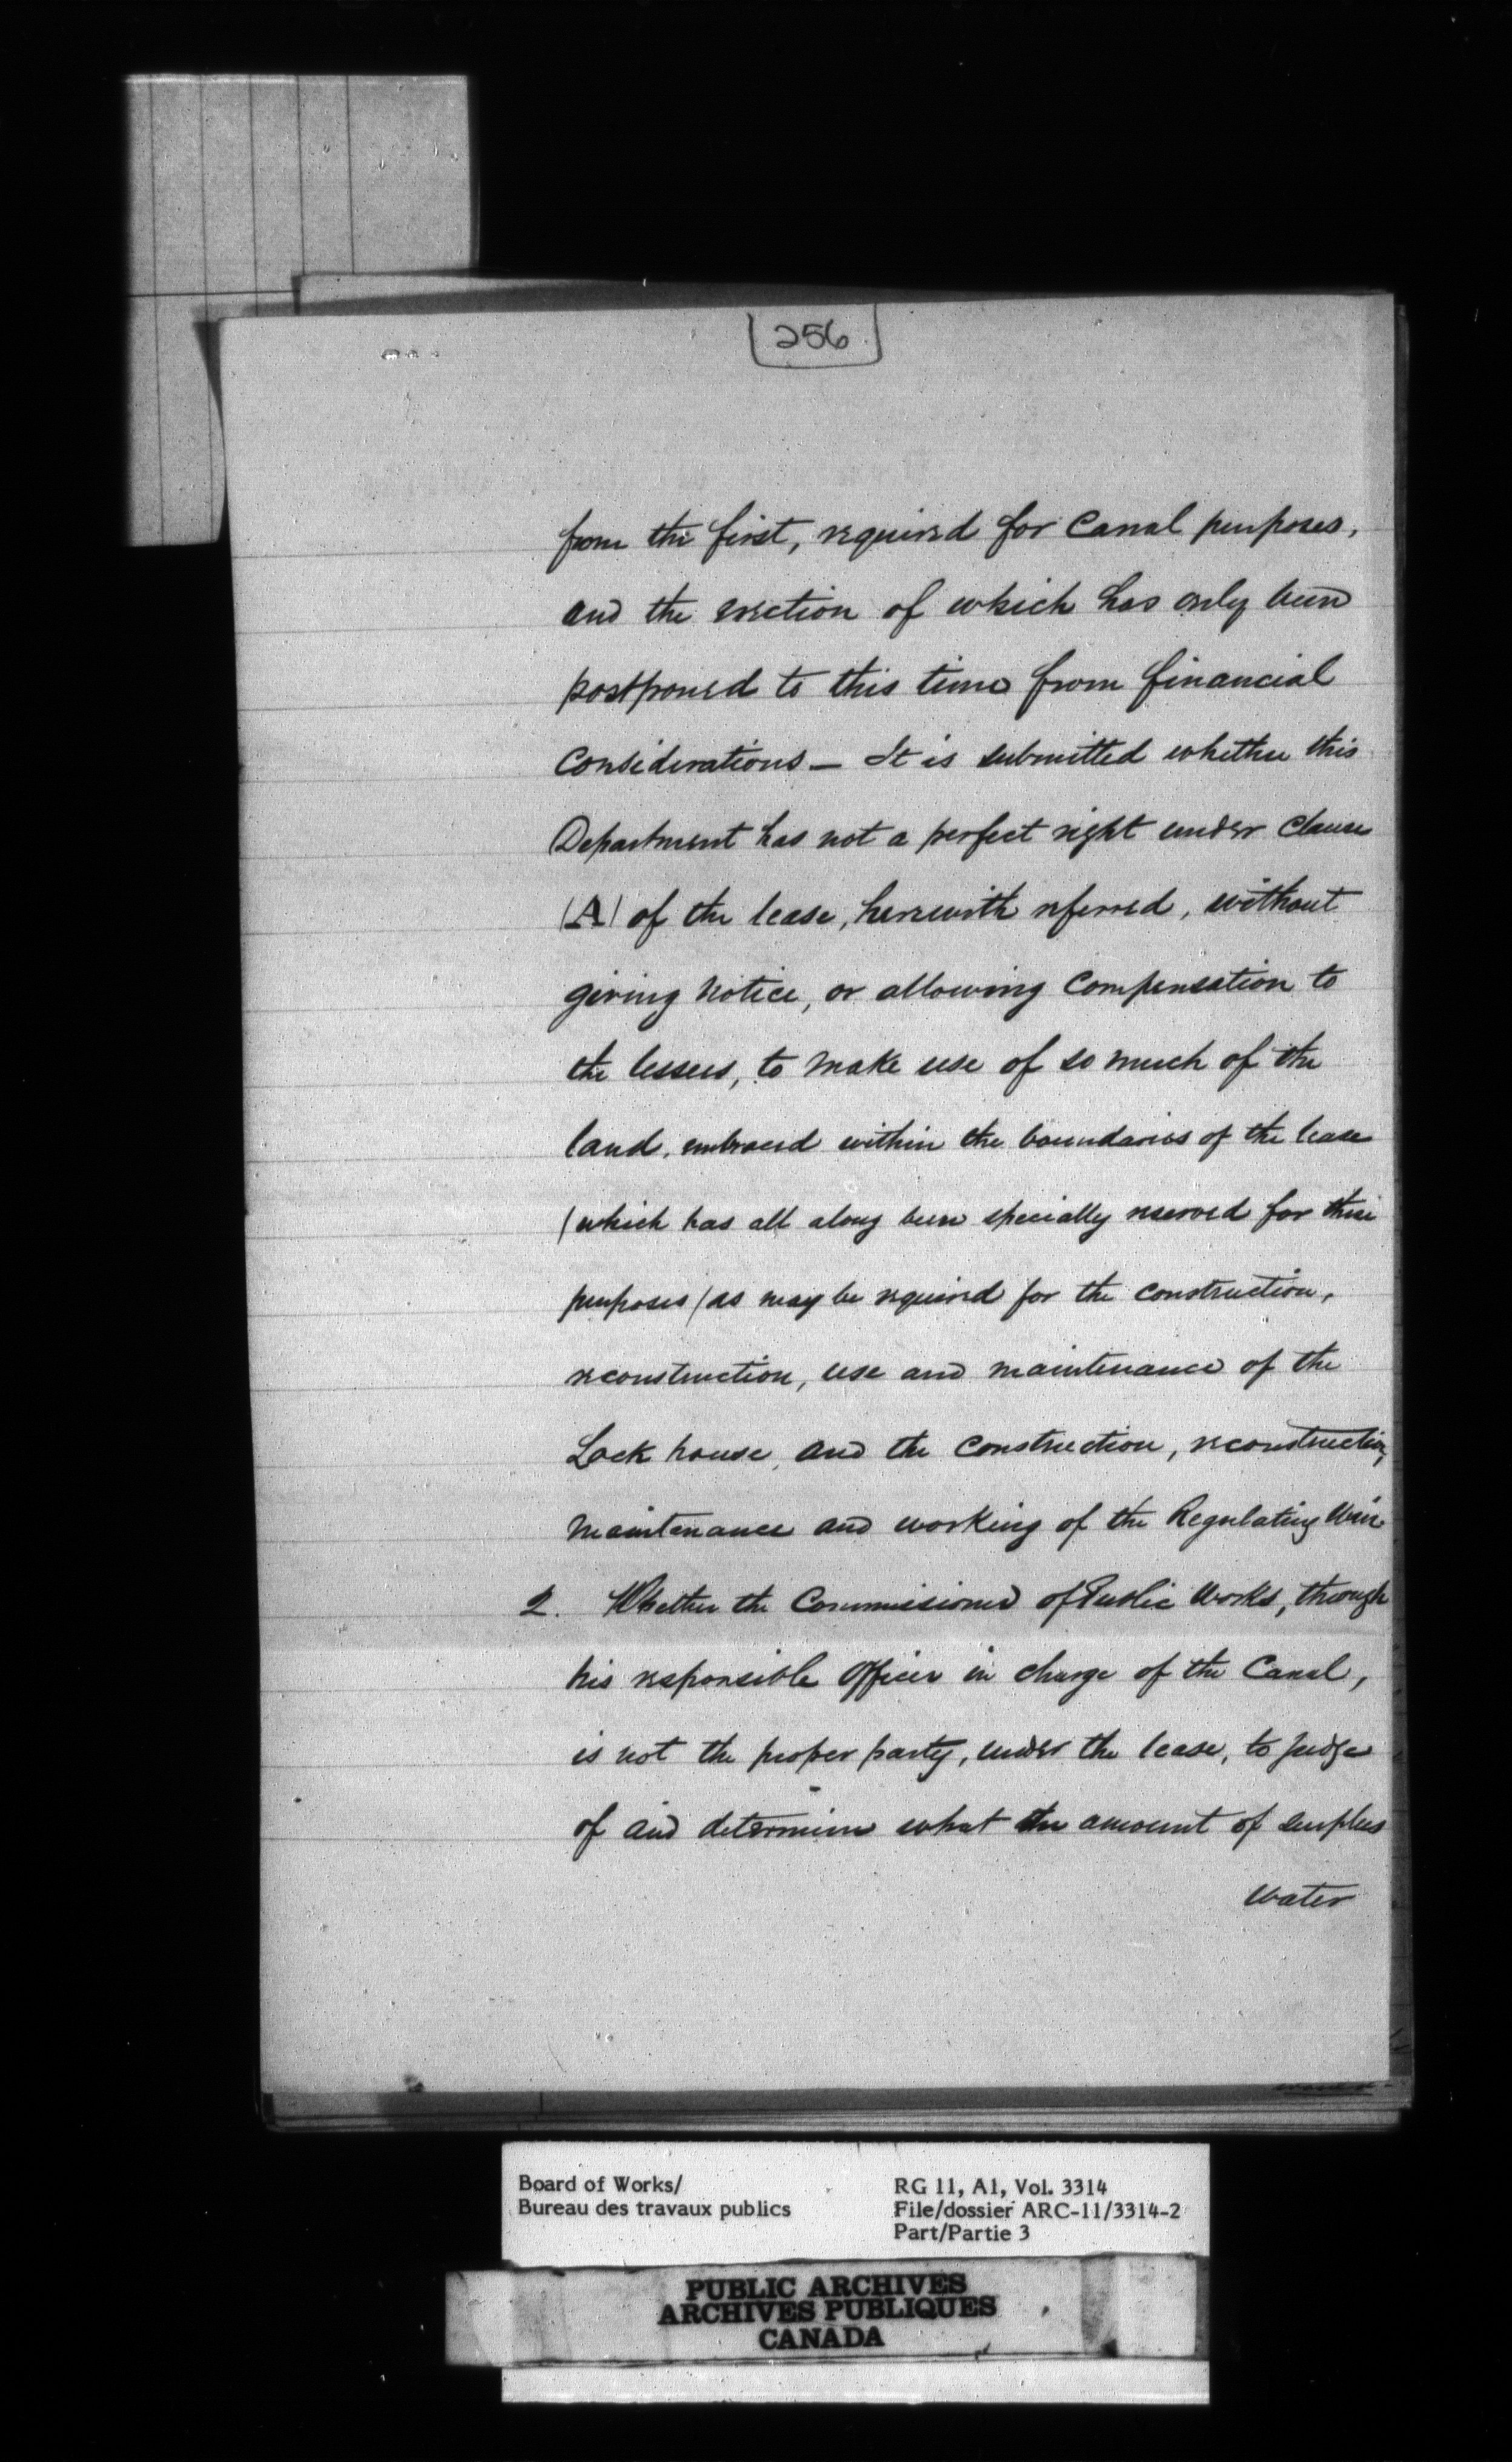 256
from the first, required for Canal purposes,
and the erection of which has only been
postponed to this time from financial
considerations — It is submitted whether this
Department has not a perfect right under Clause
(A) of the lease, herewith referred, without
giving notice, or allowing compensation to
the lessees, to make use of so much of the
land, embraced within the boundaries of the lease
(which has all along been specially reserved for these
purposes) as may be required for the construction,
reconstruction, use and maintenance of the
Lock house, and the construction, reconstruction,
maintenance and working of the Regulating Weir
2. Whether the Commissioner of Public Works, through
his responsible Officer in charge of the Canal,
is not the proper party, under the lease, to judge
of and determine what the amount of surplus
water
Board of Works/
Bureau des travaux publics
RG 11, A1, Vol. 3314
File/dossier ARC-11/3314-2
Part/Partie 3
PUBLIC ARCHIVES
ARCHIVES PUBLIQUES
CANADA